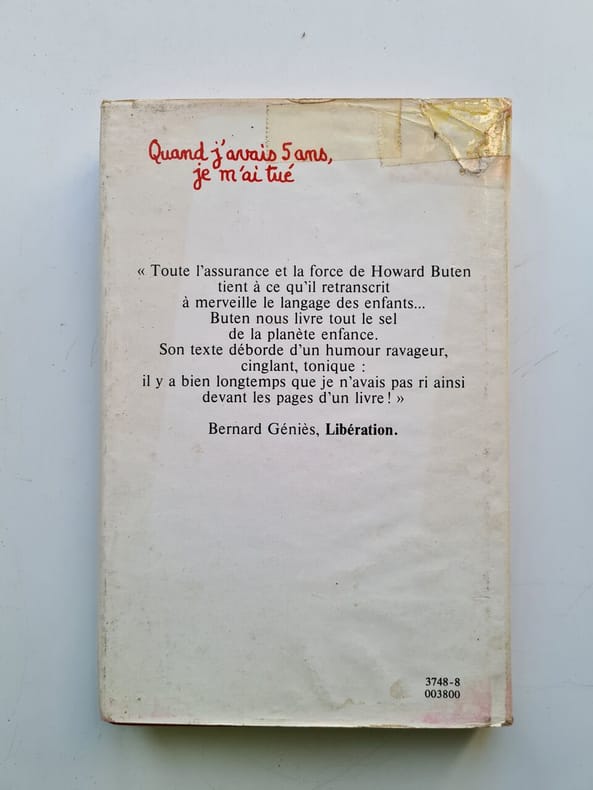 Quand j'avais 5 ans,
je m'ai tué
« Toute l'assurance et la force de Howard Buten
tient à ce qu'il retranscrit
à merveille le langage des enfants...
Buten nous livre tout le sel
de la planète enfance.
Son texte déborde d'un humour ravageur,
cinglant, tonique :
il y a bien longtemps que je n'avais pas ri ainsi
devant les pages d'un livre ! »
Bernard Géniès, Libération.
3748-8
003800